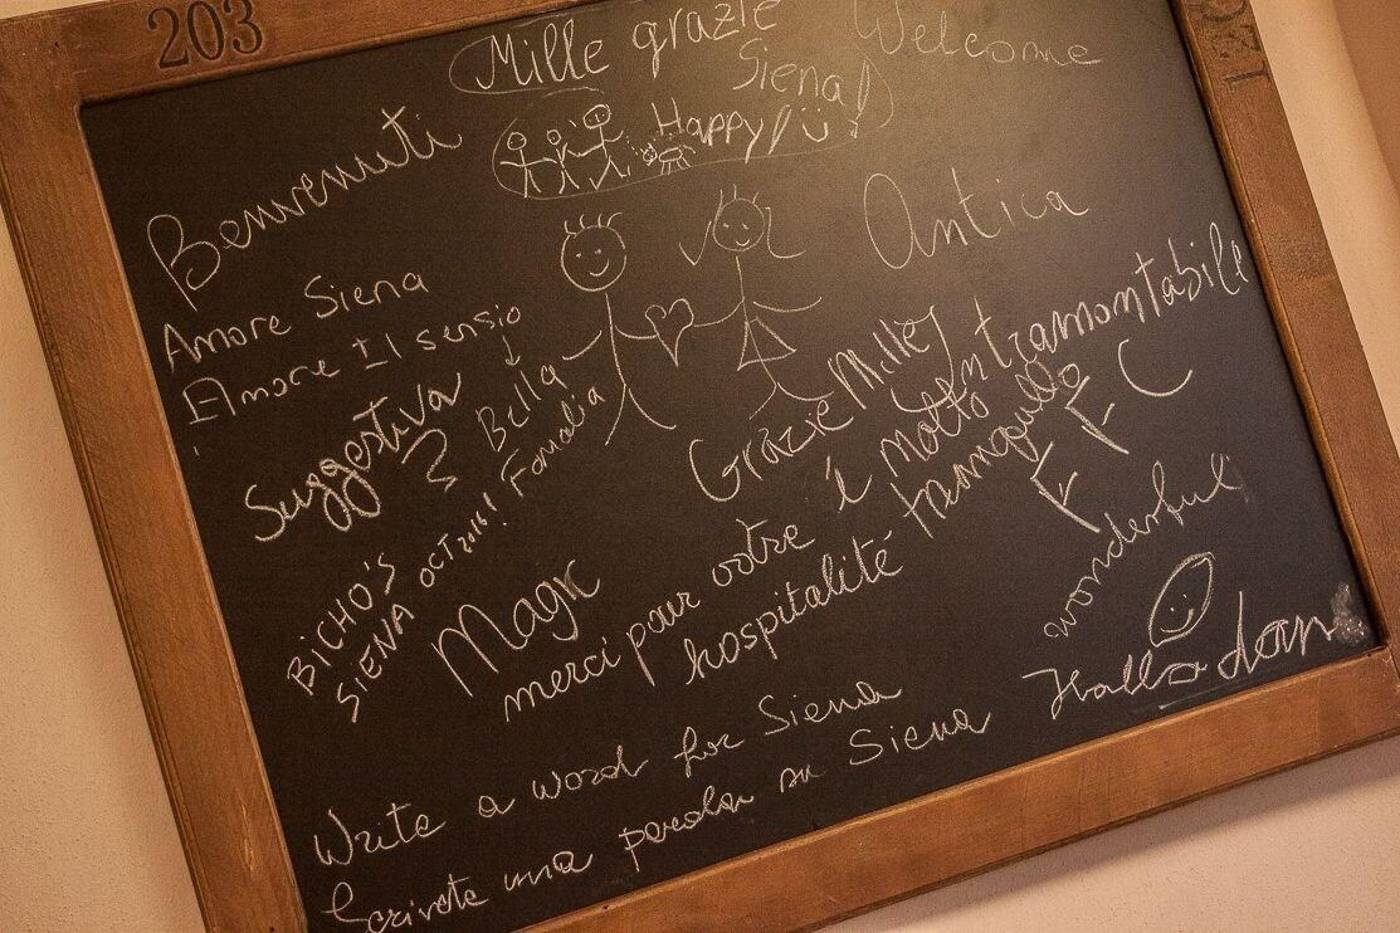 203
Mille grazie
Welcome
Siena!
Happy!
Benvenuti
Antica
Amore Siena
Amore Il sensio
Intramontabile
Suggestiva
Bella
Grazie Mille
è molto
tranquillo
BICHO'S
SIENA OCT 2016!
Magic
merci pour votre
hospitalité
wonderful
Write a word for Siena
Scrivete una parola su Siena